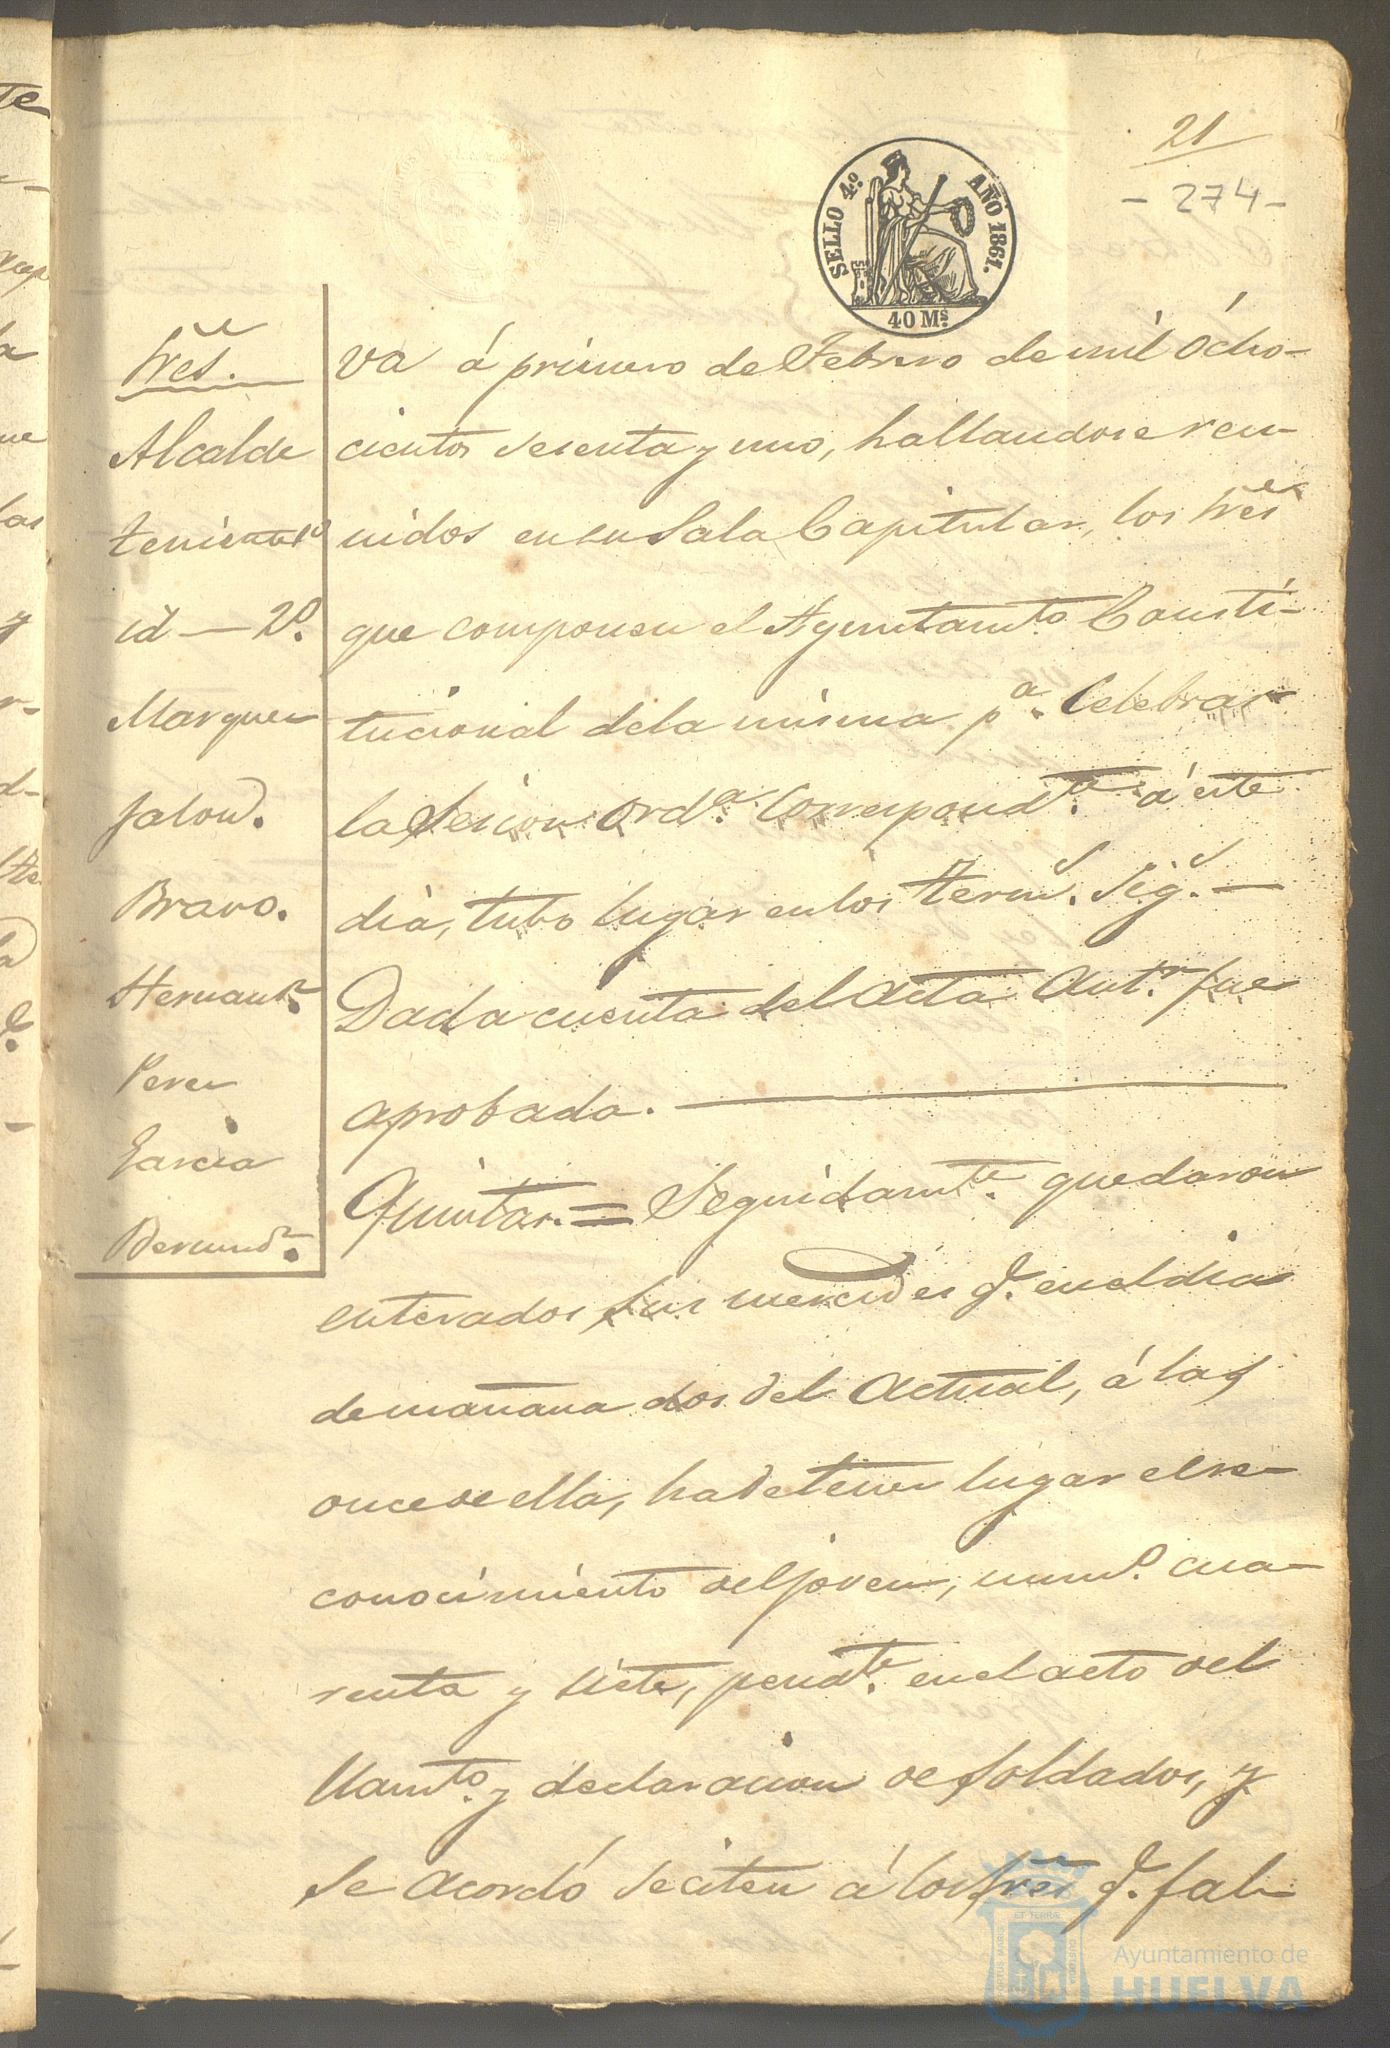 21
- 274 -
SELLO 4.º AÑO 1861.
40 Ms.
Sres.
Alcalde
Teniente 1º
id — 2º.
Marquez
Jalon.
Bravo.
Hernandz.
Perez
Garcia
Bermudz.
va á primero de Febrero de mil ocho-
cientos sesenta y uno, hallandose reu-
nidos en su Sala Capitular, los Sres
que componen el Ayuntamto. Consti-
tucional dela misma pa. Celebrar
la Sesion ordª. Correspondte. á este
dia, tubo lugar enlos term.s Sig.s —
Dada cuenta del acta Antr. fue
aprobada. —
Quintas. = Seguidamte. quedaron
enterados sus mercedes q. enel dia
de mañana dos del Actual, á las
once de ella, ha de tener lugar el re-
conocimiento del joven, numº. cua-
renta y siete, pendte. en el acto del
llamto. y declaracion de Soldados, y
se acordó se citen á los Sres q. fal-
Ayuntamiento de
HUELVA